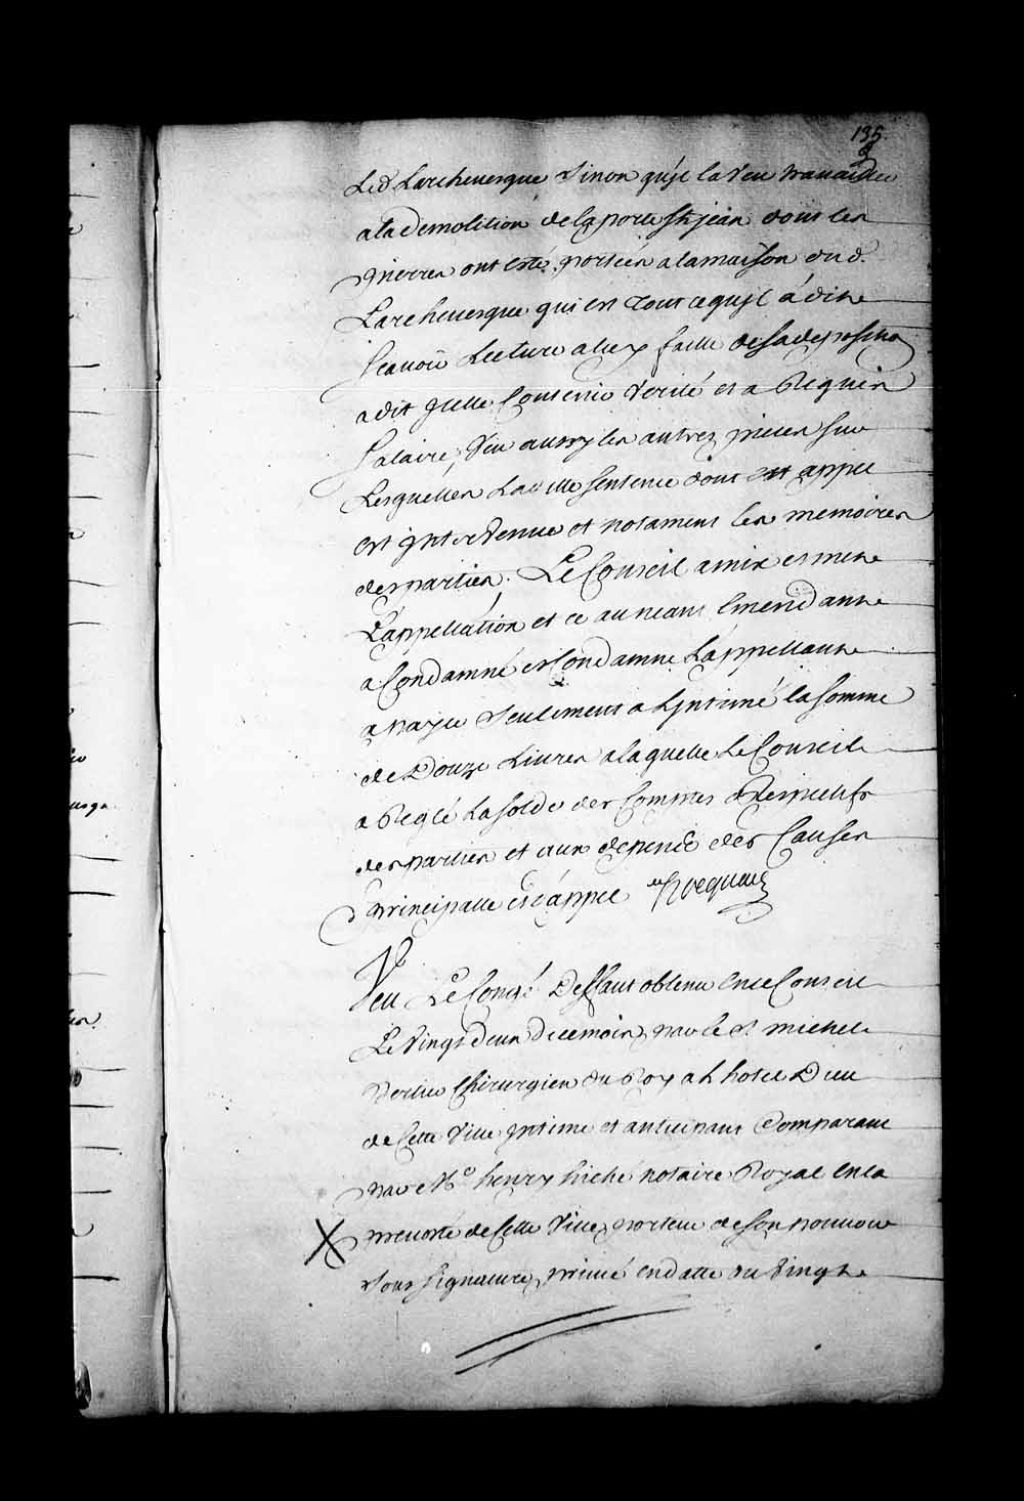 135
Led Larchevesque Sinon qu'jl la Veu travailler
a la demolition de la porte St jean dont les
pierres ont esté portées a la maison dud.
Larchevesque qui est tout ce qu'jl á dit
scavoir Lecture a luy faitte de sa deposition
a dit qu'elle Contenir Verité et a Requis
Salaire, Veu aussy les autres pieces sur
Lesquelles Laditte sentence dont est appel
est jntervenue et notament les memoires
des parties. Le Conseil a mis et met
L'appellation et ce au neant Emendant
a Condamné et Condamne L'appellant
a payer seulement a L'jntimé la somme
de Douze Livres a laquelle Le Conseil
a Reglé La solde des Comptes Respectifs
des parties et aux depens des Causes
principalle et d'appel Hocquart
Veu Le Congé Deffaut obtenu en ce Conseil
Le Vingt deux decembre par le Sr michel
Bertier Chirurgien du Roy a L'hotel Dieu
de Cette Ville jntimé et anticipant Comparant
par Me henry hiché notaire Royal en la
prevosté de Cette Ville porteur de son pouvoir
sous signature privée en datte du Vingt